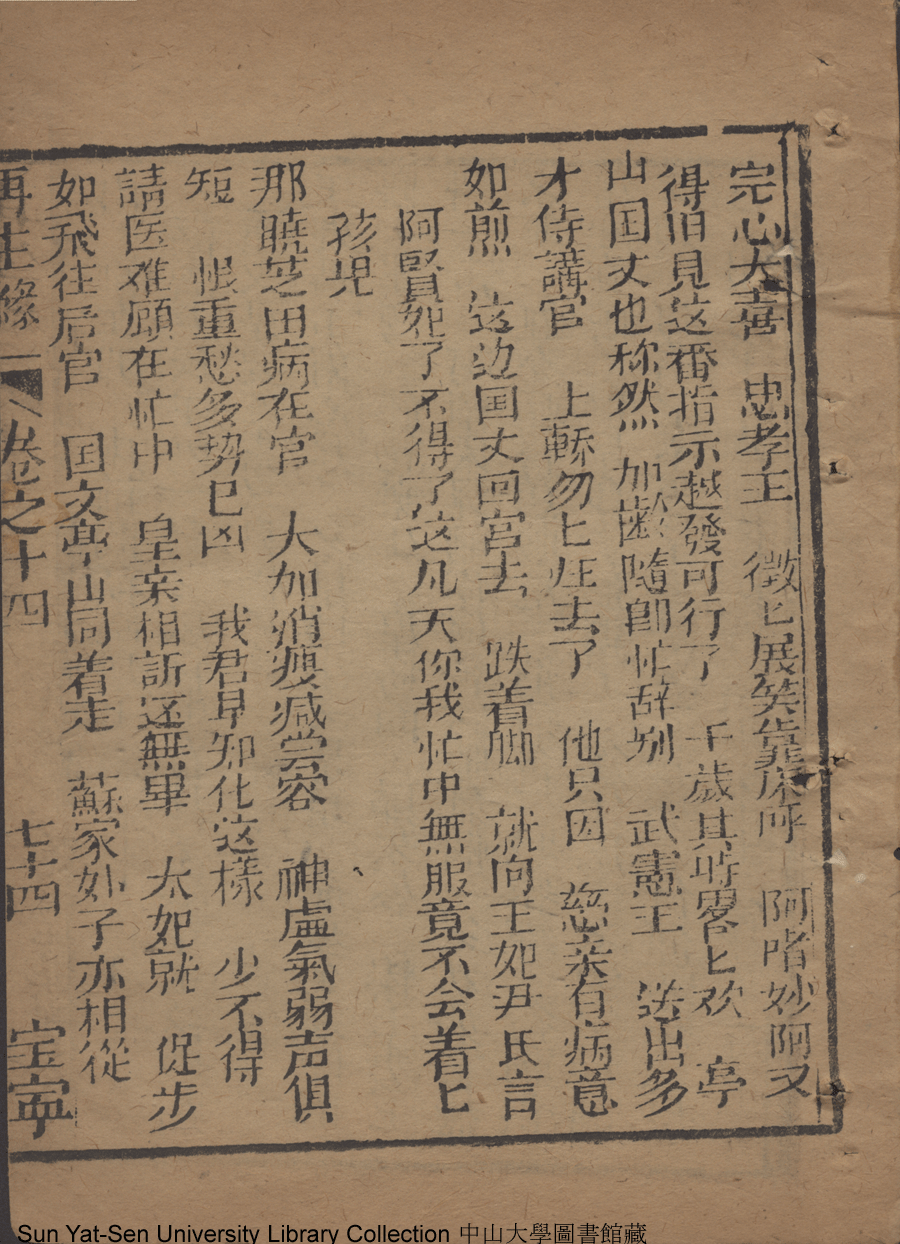 完心大喜　忠孝王　徴匕展笑靠床呼　阿㖭妙阿又
得旧見这番指示越發可行了　千歲其時零匕欢　亭
山国丈也称然　加齡隨卽忙辞别　武憲王　送出多
才侍講官　上轎勿匕徃去了　他只因　慈亲有病意
如煎　这边国丈回宫去　跌着脚　就向王妃尹氏言
阿賢妃了不得了这凡天你我忙中無服竟不会着匕
孩児
那曉芝田病在官　大加消瘦减尝容　神虚氣弱声俱
短　恨重愁多势已凶　我君早知化这樣　少不得
請医难顧在忙中　皇亲相訴还無畢　太妃就　促步
如飛往后官　国丈亭山同着走　蘇家妳子亦相從
再生緣　卷之十四　七十四　宝寧
Sun Yat-Sen University Library Collection 中山大學圖書館藏